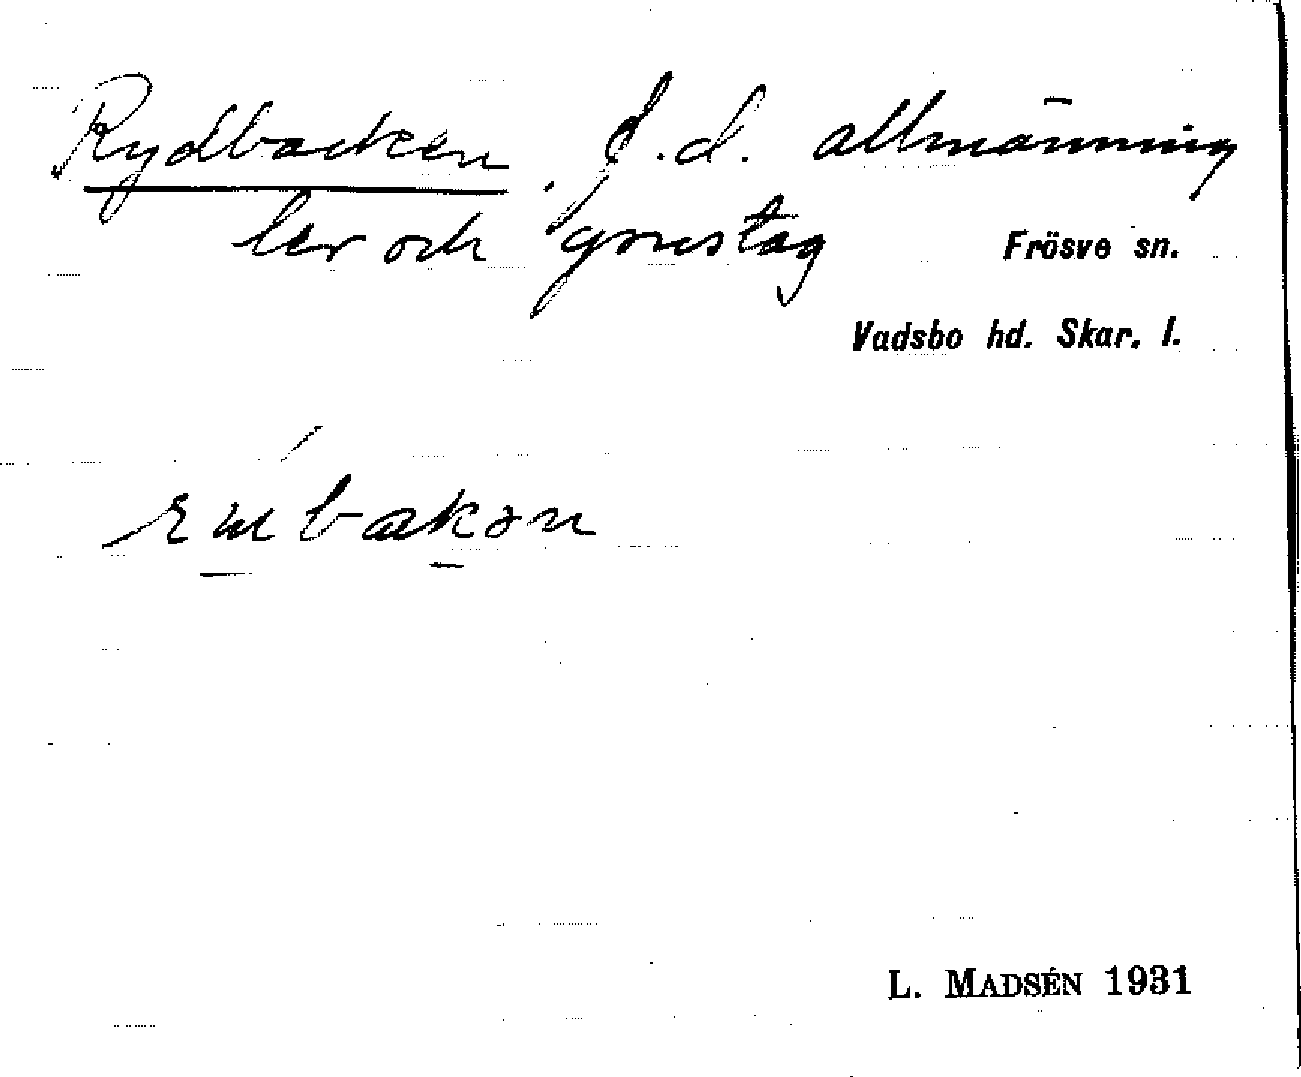 Rydbacken. f.d. allmänning
ler och grustag
Frösve sn.
Vadsbo hd. Skar. l.
L. MADSÉN 1931